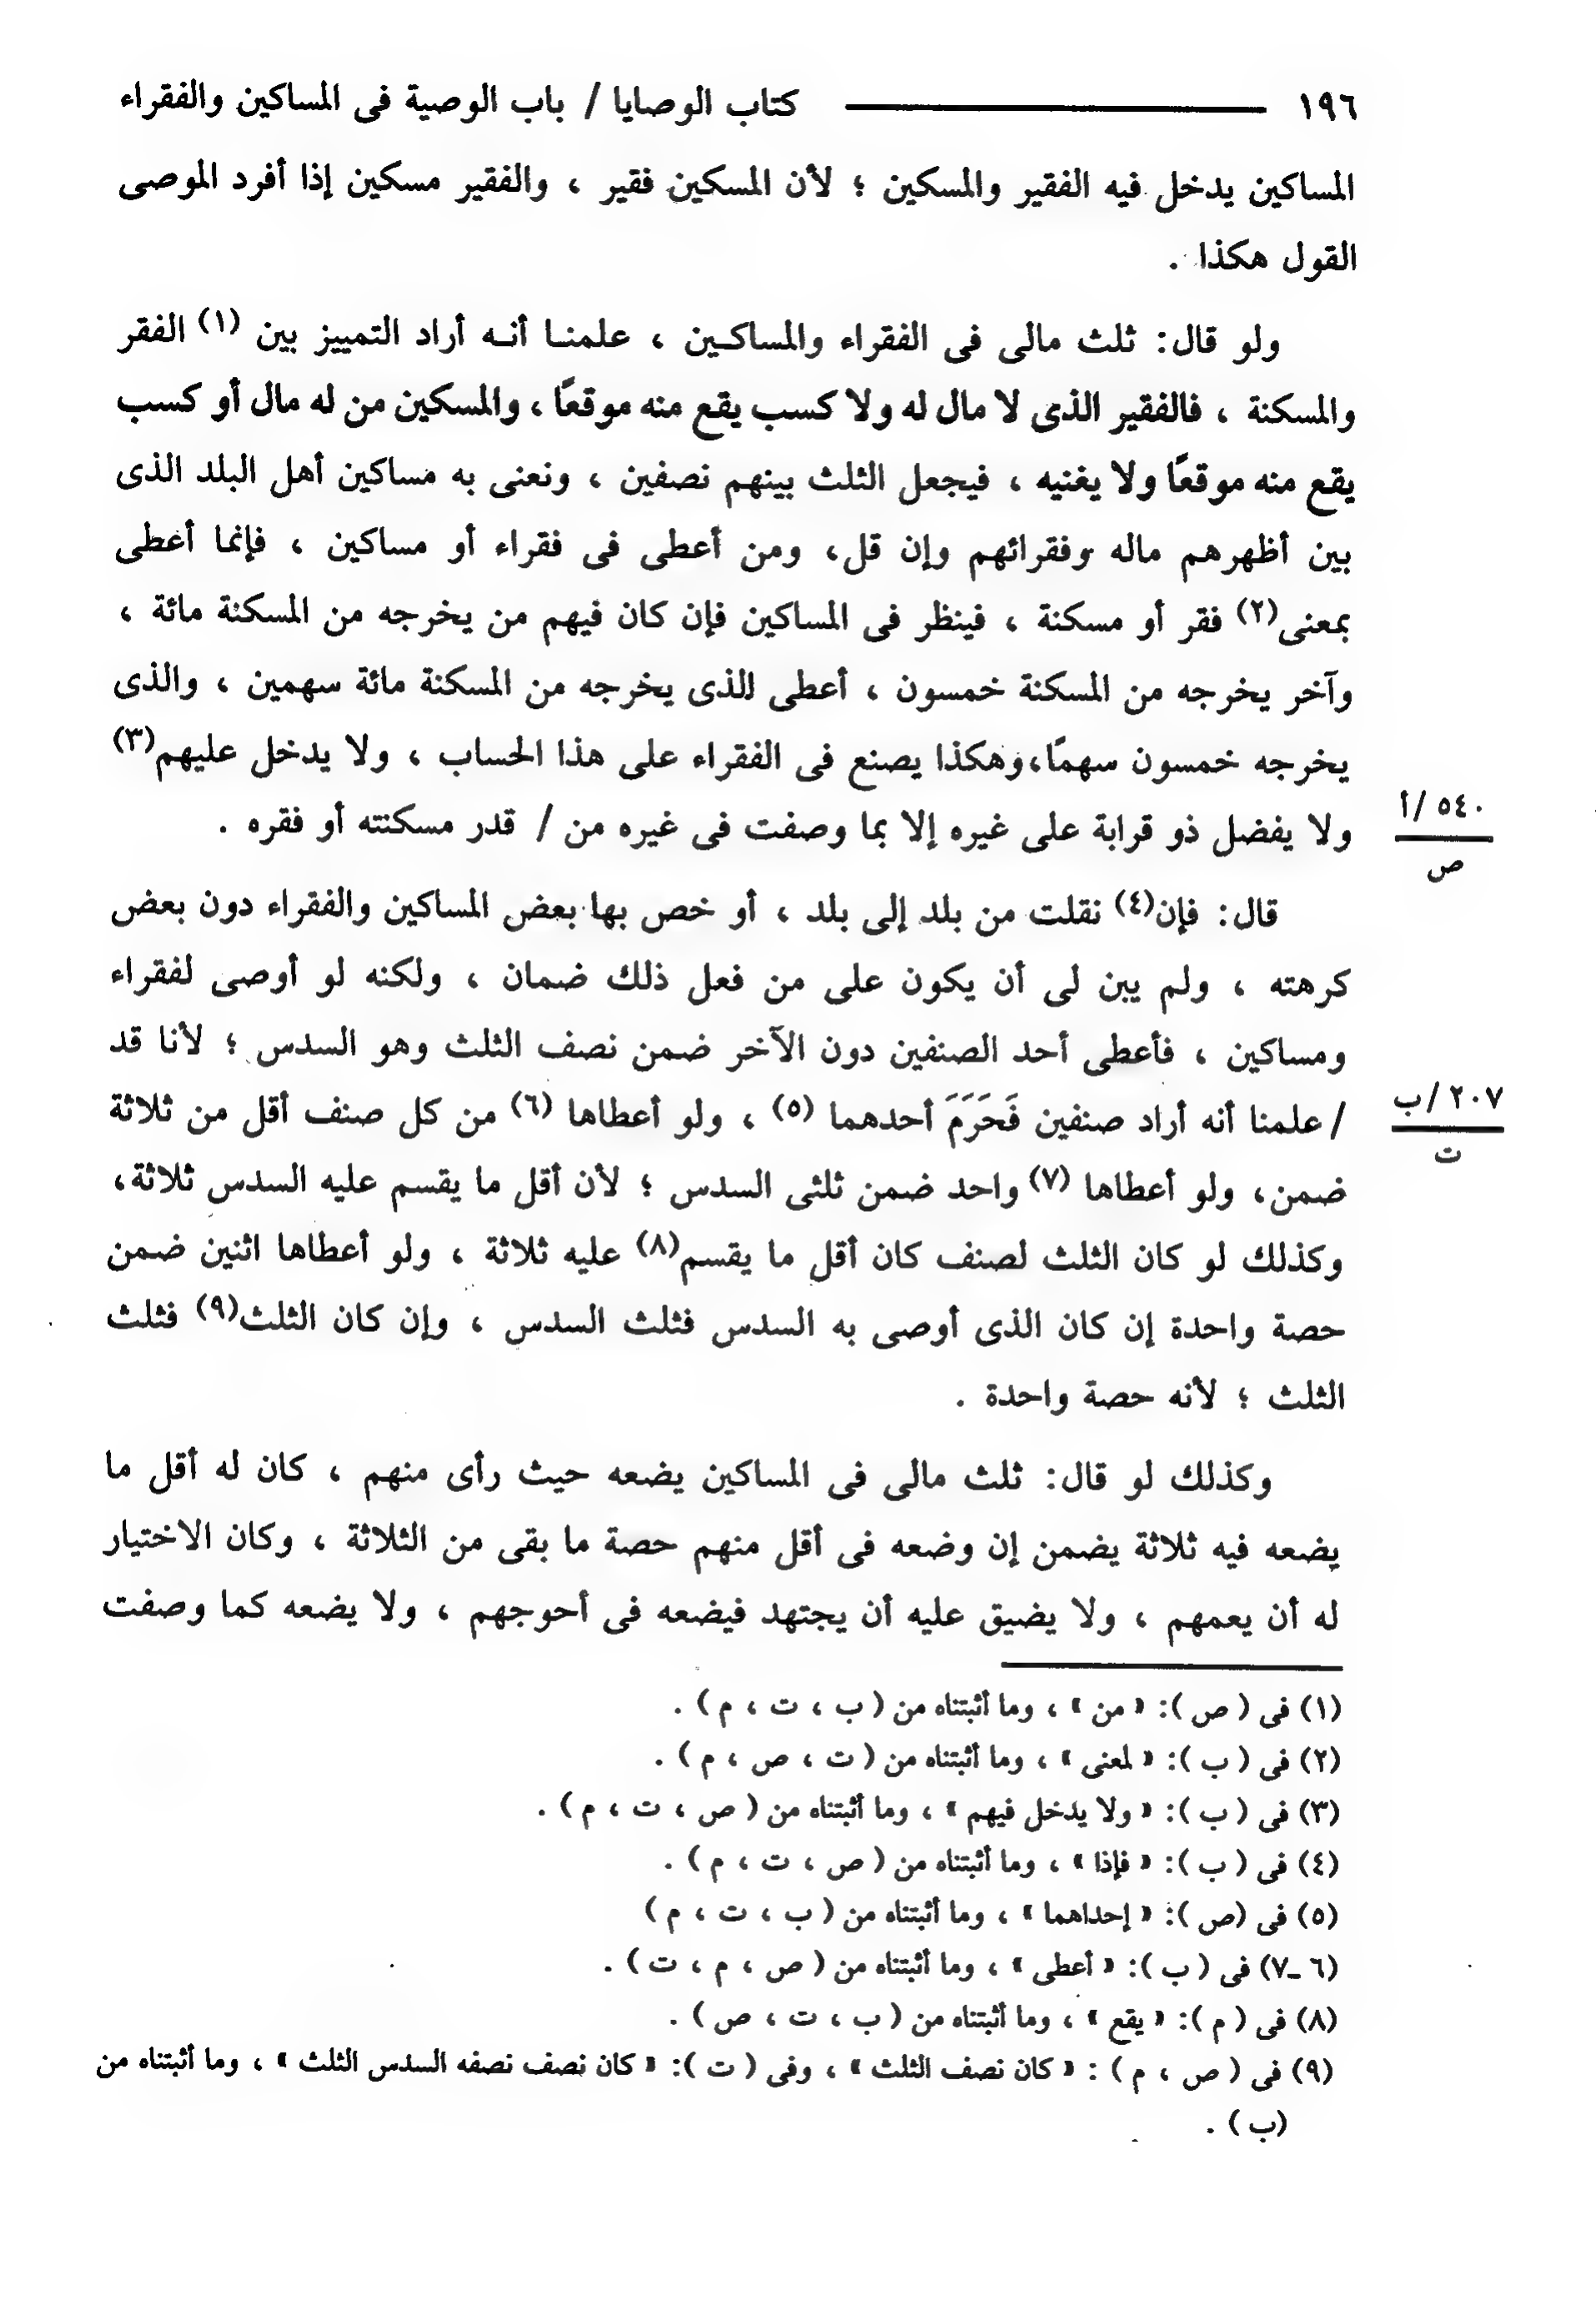 ١٩٦ ــــــــــــ كتاب الوصايا / باب الوصية فى المساكين والفقراء
المساكين يدخل فيه الفقير والمسكين ؛ لأن المسكين فقير ، والفقير مسكين إذا أفرد الموصى
القول هكذا .
ولو قال: ثلث مالى فى الفقراء والمساكـين ، علمنـا أنـه أراد التمييز بين (١) الفقر
والمسكنة ، فالفقير الذى لا مال له ولا كسب يقع منه موقعًا ، والمسكين من له مال أو كسب
يقع منه موقعًا ولا يغنيه ، فيجعل الثلث بينهم نصفين ، ونعنى به مساكين أهل البلد الذى
بين أظهرهم ماله وفقرائهم وإن قل، ومن أعطى فى فقراء أو مساكين ، فإنما أعطى
بمعنى(٢) فقر أو مسكنة ، فينظر فى المساكين فإن كان فيهم من يخرجه من المسكنة مائة ،
وآخر يخرجه من المسكنة خمسون ، أعطى الذى يخرجه من المسكنة مائة سهمين ، والذى
يخرجه خمسون سهمًا،وهكذا يصنع فى الفقراء على هذا الحساب ، ولا يدخل عليهم(٣)
ولا يفضل ذو قرابة على غيره إلا بما وصفت فى غيره من / قدر مسكنته أو فقره .
٥٤٠ /أ
ص
قال: فإن(٤) نقلت من بلد إلى بلد ، أو خص بها بعض المساكين والفقراء دون بعض
كرهته ، ولم يبن لى أن يكون على من فعل ذلك ضمان ، ولكنه لو أوصى لفقراء
ومساكين ، فأعطى أحد الصنفين دون الآخر ضمن نصف الثلث وهو السدس ؛ لأنا قد
/ علمنا أنه أراد صنفين فَحَرَمَ أحدهما (٥) ، ولو أعطاها (٦) من كل صنف أقل من ثلاثة
٢٠٧ /ب
ت
ضمن، ولو أعطاها (٧) واحد ضمن ثلثى السدس ؛ لأن أقل ما يقسم عليه السدس ثلاثة،
وكذلك لو كان الثلث لصنف كان أقل ما يقسم(٨) عليه ثلاثة ، ولو أعطاها اثنين ضمن
حصة واحدة إن كان الذى أوصى به السدس فثلث السدس ، وإن كان الثلث(٩) فثلث
الثلث ؛ لأنه حصة واحدة .
وكذلك لو قال: ثلث مالى فى المساكين يضعه حيث رأى منهم ، كان له أقل ما
يضعه فيه ثلاثة يضمن إن وضعه فى أقل منهم حصة ما بقى من الثلاثة ، وكان الاختيار
له أن يعمهم ، ولا يضيق عليه أن يجتهد فيضعه فى أحوجهم ، ولا يضعه كما وصفت
(١) فى ( ص ): « من » ، وما أثبتناه من ( ب ، ت ، م ) .
(٢) فى ( ب ): « لمعنى » ، وما أثبتناه من ( ت ، ص ، م ) .
(٣) فى ( ب ): « ولا يدخل فيهم » ، وما أثبتناه من ( ص ، ت ، م ) .
(٤) فى ( ب ): « فإذا » ، وما أثبتناه من ( ص ، ت ، م ) .
(٥) فى (ص ): « إحداهما » ، وما أثبتناه من ( ب ، ت ، م )
(٦ ـ٧) فى ( ب ): « أعطى » ، وما أثبتناه من ( ص ، م ، ت ) .
(٨) فى ( م ): « يقع » ، وما أثبتناه من ( ب ، ت ، ص ) .
(٩) فى ( ص ، م ) : « كان نصف الثلث » ، وفى ( ت ): « كان نصف نصفه السدس الثلث » ، وما أثبتناه من
(ب ) .